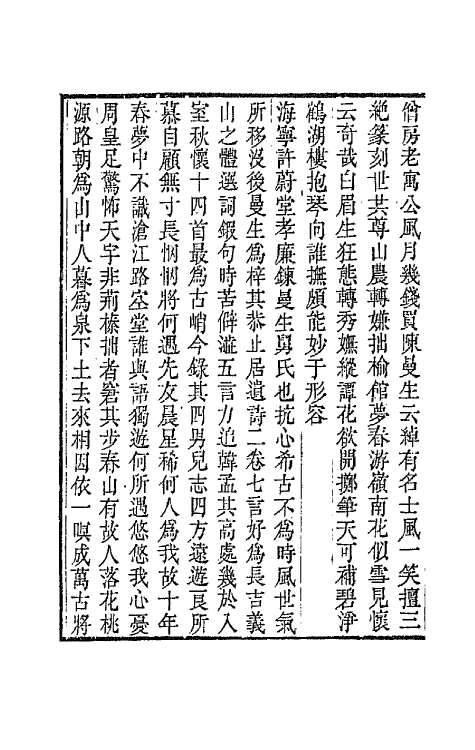 僧房老寓公風月幾錢買陳曼生云綽有名士風一笑擅三
絶篆刻世共尊山農轉嫌拙榆館夢春游嶺南花似雪見懷
云奇哉白眉生狂態轉秀嫵縱譚花欲開擲筆天可補碧淨
鶴湖樓抱琴向誰撫頗能妙于形容
海寧許蔚堂孝廉鍊曼生舅氏也抗心希古不爲時風世氣
所移沒後曼生爲梓其恭止居遺詩二卷七言好爲長吉義
山之體選詞鍜句時苦僻澁五言力追韓孟其高處幾於入
室秋懷十四首最爲古峭今錄其四男兒志四方遠遊良所
慕自顧無寸長惘惘將何遇先友晨星稀何人爲我故十年
春夢中不識滄江路空堂誰與語獨遊何所遇悠悠我心憂
周皇足驚怖天宇非荊榛拙者窘其步春山有故人落花桃
源路朝爲山中人暮爲泉下土去來相因依一嗅成萬古將